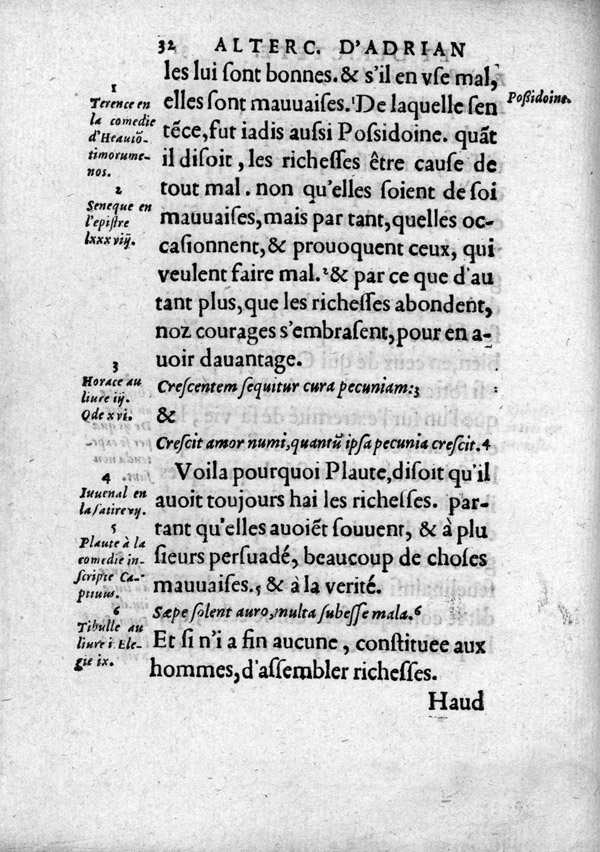 32 ALTERC. D'ADRIAN
les lui sont bonnes. & s'il en vse mal,
elles sont mauuaises.¹ De laquelle sen
tẽce, fut iadis aussi Possidoine. quãt
il disoit, les richesses être cause de
tout mal. non qu'elles soient de soi
mauuaises, mais par tant, quelles oc-
casionnent, & prouoquent ceux, qui
veulent faire mal.² & par ce que d'au
tant plus, que les richesses abondent,
noz courages s'embrasent, pour en a-
uoir dauantage.
Crescentem sequitur cura pecuniam:3
&
Crescit amor numi, quantũ ipsa pecunia crescit.4
Voila pourquoi Plaute, disoit qu'il
auoit toujours hai les richesses. par-
tant qu'elles auoiẽt souuent, & à plu
sieurs persuadé, beaucoup de choses
mauuaises.5 & à la verité.
Sæpe solent auro, multa subesse mala.6
Et si n'i a fin aucune, constituee aux
hommes, d'assembler richesses.
Haud
Possidoine.
1
Terence en
la comedie
d'Heautõ-
timorume-
nos.
2
Seneque en
l'epistre
lxxxvij.
3
Horace au
liure iij.
Ode xvi.
4
Iuuenal en
la satire vij.
5
Plaute à la
comedie in-
scripte Ca-
ptiuus.
6
Tibulle au
liure i. Ele-
gie ix.